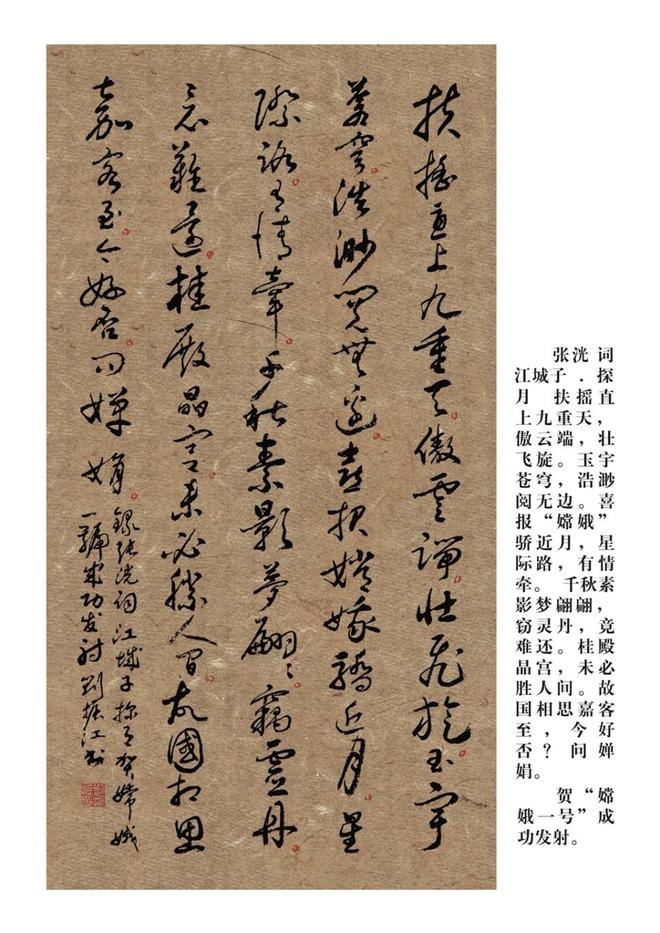 扶搖直上九重天傲雲端壮飛旋玉宇
蒼穹浩渺閱無邊喜报嫦娥驕近月星
際路有情牽千秋素影夢翩〻竊靈丹
竟難還桂殿晶宫未必勝人间故國相思
嘉客至今好否问嬋娟
錄张洸词江城子探月贺嫦娥
一號成功发射劉振江书
张洸 词
江城子 . 探
月 扶摇直
上九重天，
傲云端，壮
飞旋。玉宇
苍穹，浩渺
阅无边。喜
报“嫦娥”
骄近月，星
际路，有情
牵。 千秋素
影梦翩翩，
窃灵丹，竟
难还。桂殿
晶宫，未必
胜人间。故
国相思嘉客
至，今好
否？问婵
娟。
贺“嫦
娥一号”成
功发射。